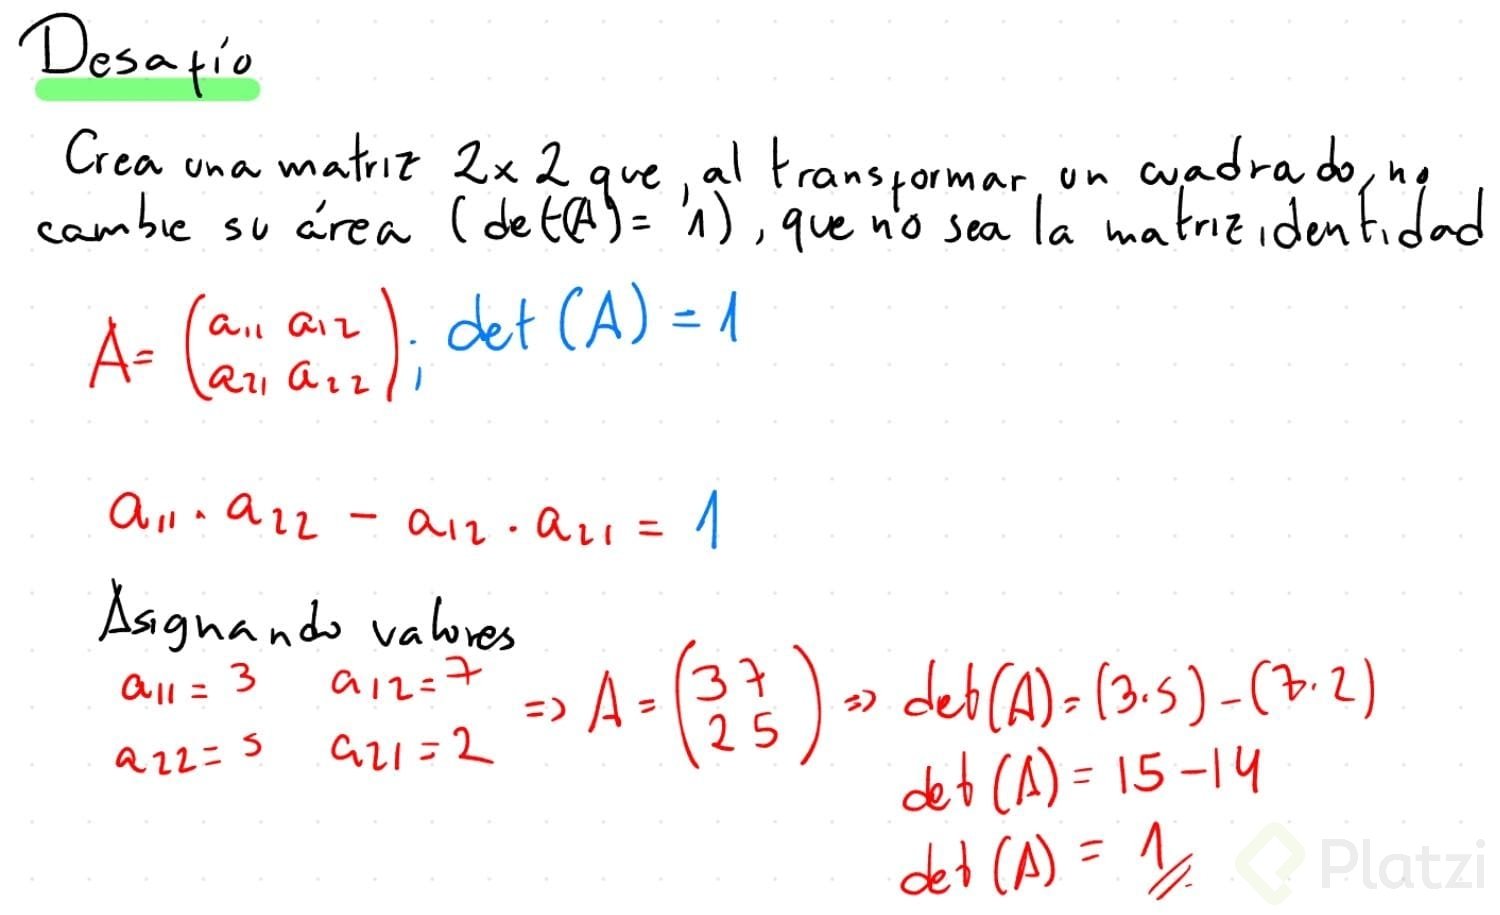 Desafío
Crea una matriz 2x2 que, al transformar un cuadrado, no
cambie su área (det(A)= 1), que no sea la matriz identidad
A= (a11 a12
a21 a22); det (A) = 1
a11 . a22 - a12 . a21 = 1
Asignando valores
a11 = 3 a12=7
a22= 5 a21 = 2
=> A = (3 7
2 5) => det(A)=(3.5)-(7.2)
det (A) = 15-14
det (A) = 1
Platzi